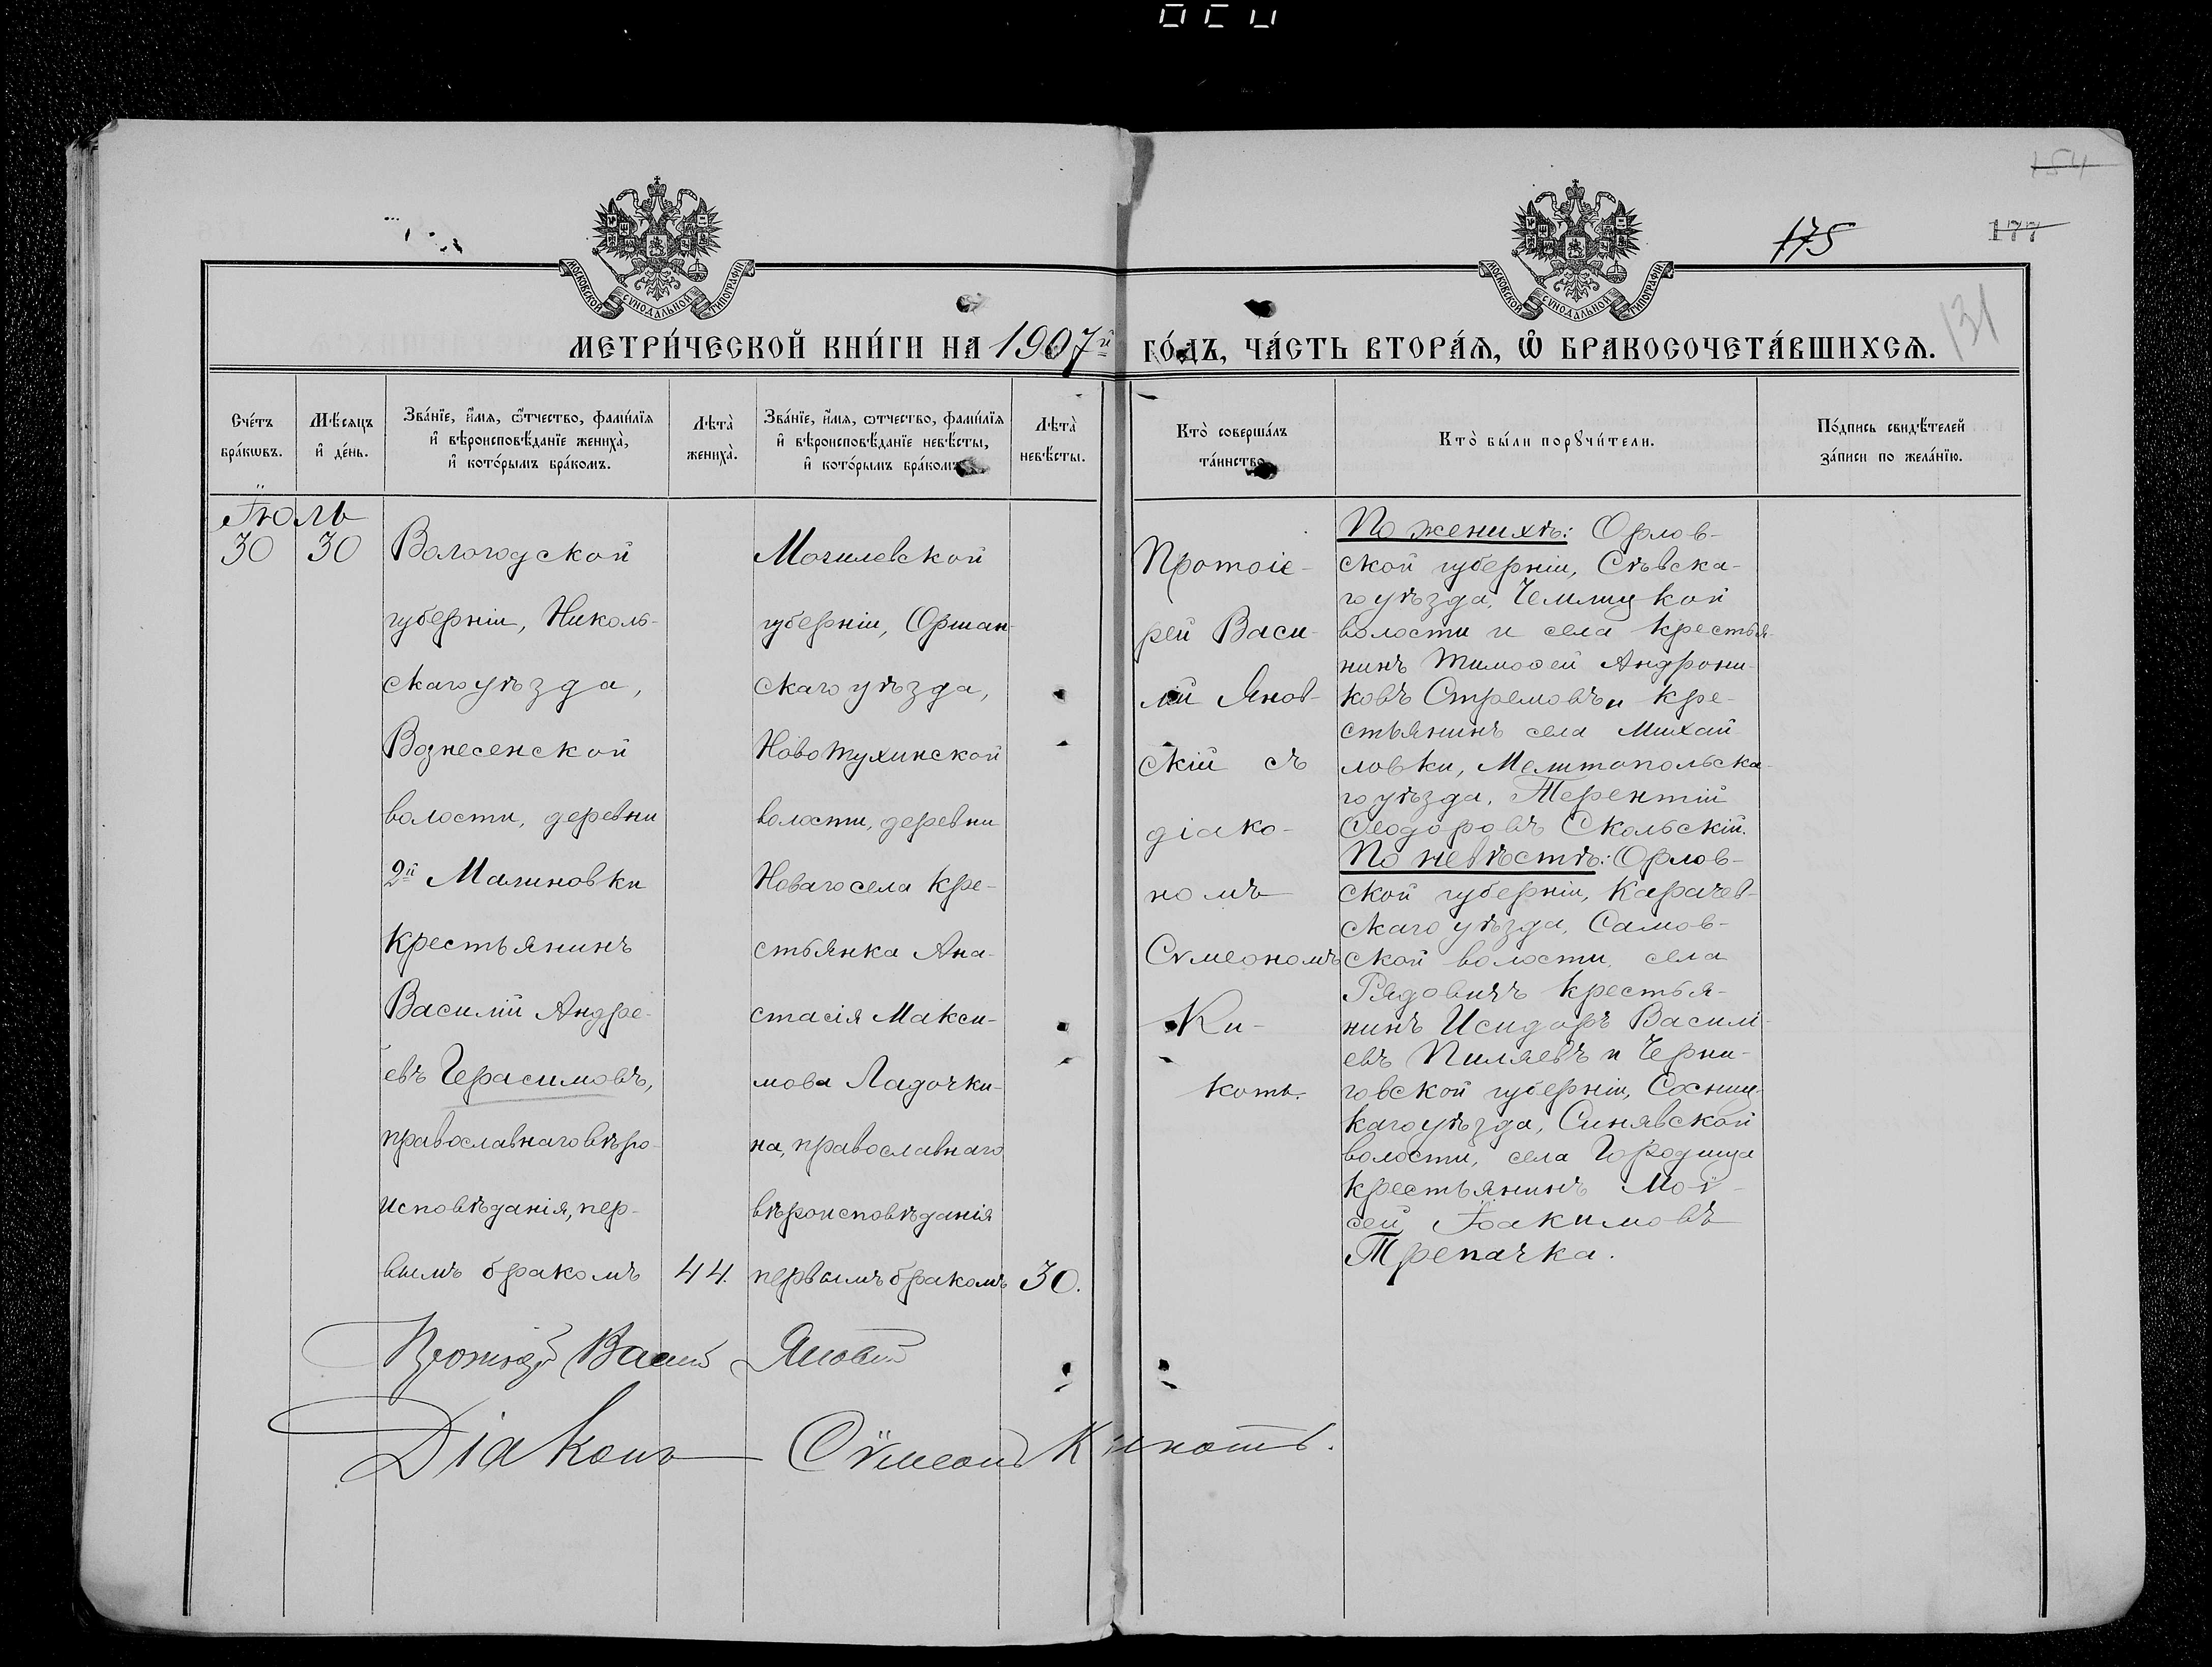 154
175
177
131
МОСКОВСКОЙ СѴНОДАЛЬНОЙ ТИПОГРАФІИ
МОСКОВСКОЙ СѴНОДАЛЬНОЙ ТИПОГРАФІИ
МЕТРИ́ЧЕСКОЙ КНИ́ГИ НА 1907й ГО́ДЪ, ЧА́СТЬ ВТОРА́Ѧ, Ѡ҆ БРАКОСОЧЕТА́ВШИХСѦ.
Сче́тъ
бра́кѡвъ.
Мѣ́сѧцъ
и҆ де́нь.
Зва́нїе, и҆́мѧ, ѻ҆́тчество, фами́лїѧ
и҆ вѣроисповѣ́данїе жениха̀,
и҆ кото́рымъ бра́комъ.
Лѣта̀
жениха̀.
Зва́нїе, и҆́мѧ, ѻтчество, фами́лїѧ
и҆ вѣроисповѣ́данїе невѣ́сты,
и҆ кото́рымъ бра́комъ.
Лѣта̀
невѣ́сты.
Кто̀ соверша́лъ
та́инство.
Кто̀ бы́ли порꙋчи́тели.
По́дпись свидѣ́телей
за́писи по жела́нїю.
Іюль
30
30
Вологодской
губерніи, Николь-
скаго уѣзда,
Вознесенской
волости, деревни
2й Малиновки
крестьянинъ
Василій Андре-
евъ Герасимовъ,
православнаго вѣро-
исповѣданія, пер-
вымъ бракомъ
44.
Могилевской
губерніи, Оршан-
скаго уѣзда,
Новотухинской
волости, деревни
Новаго села кре-
стьянка Ана-
стасія Макси-
мова Ладочки-
на, православнаго
вѣроисповѣданія
первымъ бракомъ
30.
Протоіе-
рей Васи-
лій Янов-
скій съ
діако-
номъ
Сѵмеономъ
Ки-
коть.
По женихѣ: Орлов-
ской губерніи, Сѣвска-
го уѣзда, Чемлицкой
волости и села крестья-
нинъ Тимоѳей Андрони-
ковъ Стремовъ и кре-
стьянинъ села Михай-
ловки, Мелитопольска-
го уѣзда, Терентій
Ѳеодоровъ Скольскій.
По невѣстѣ: Орлов-
ской губерніи, Карачев-
скаго уѣзда, Самов-
ской волости, села
Рядовичъ крестья-
нинъ Исидоръ Василі-
евъ Пиляевъ и Черни-
говской губерніи, Сосниц-
каго уѣзда, Синявской
волости, села Городища
крестьянинъ Мои-
сей Іоакимовъ
Трепачка.
Протоіерей Василій Яновскій
Діаконъ Сѵмеонъ Кикоть.